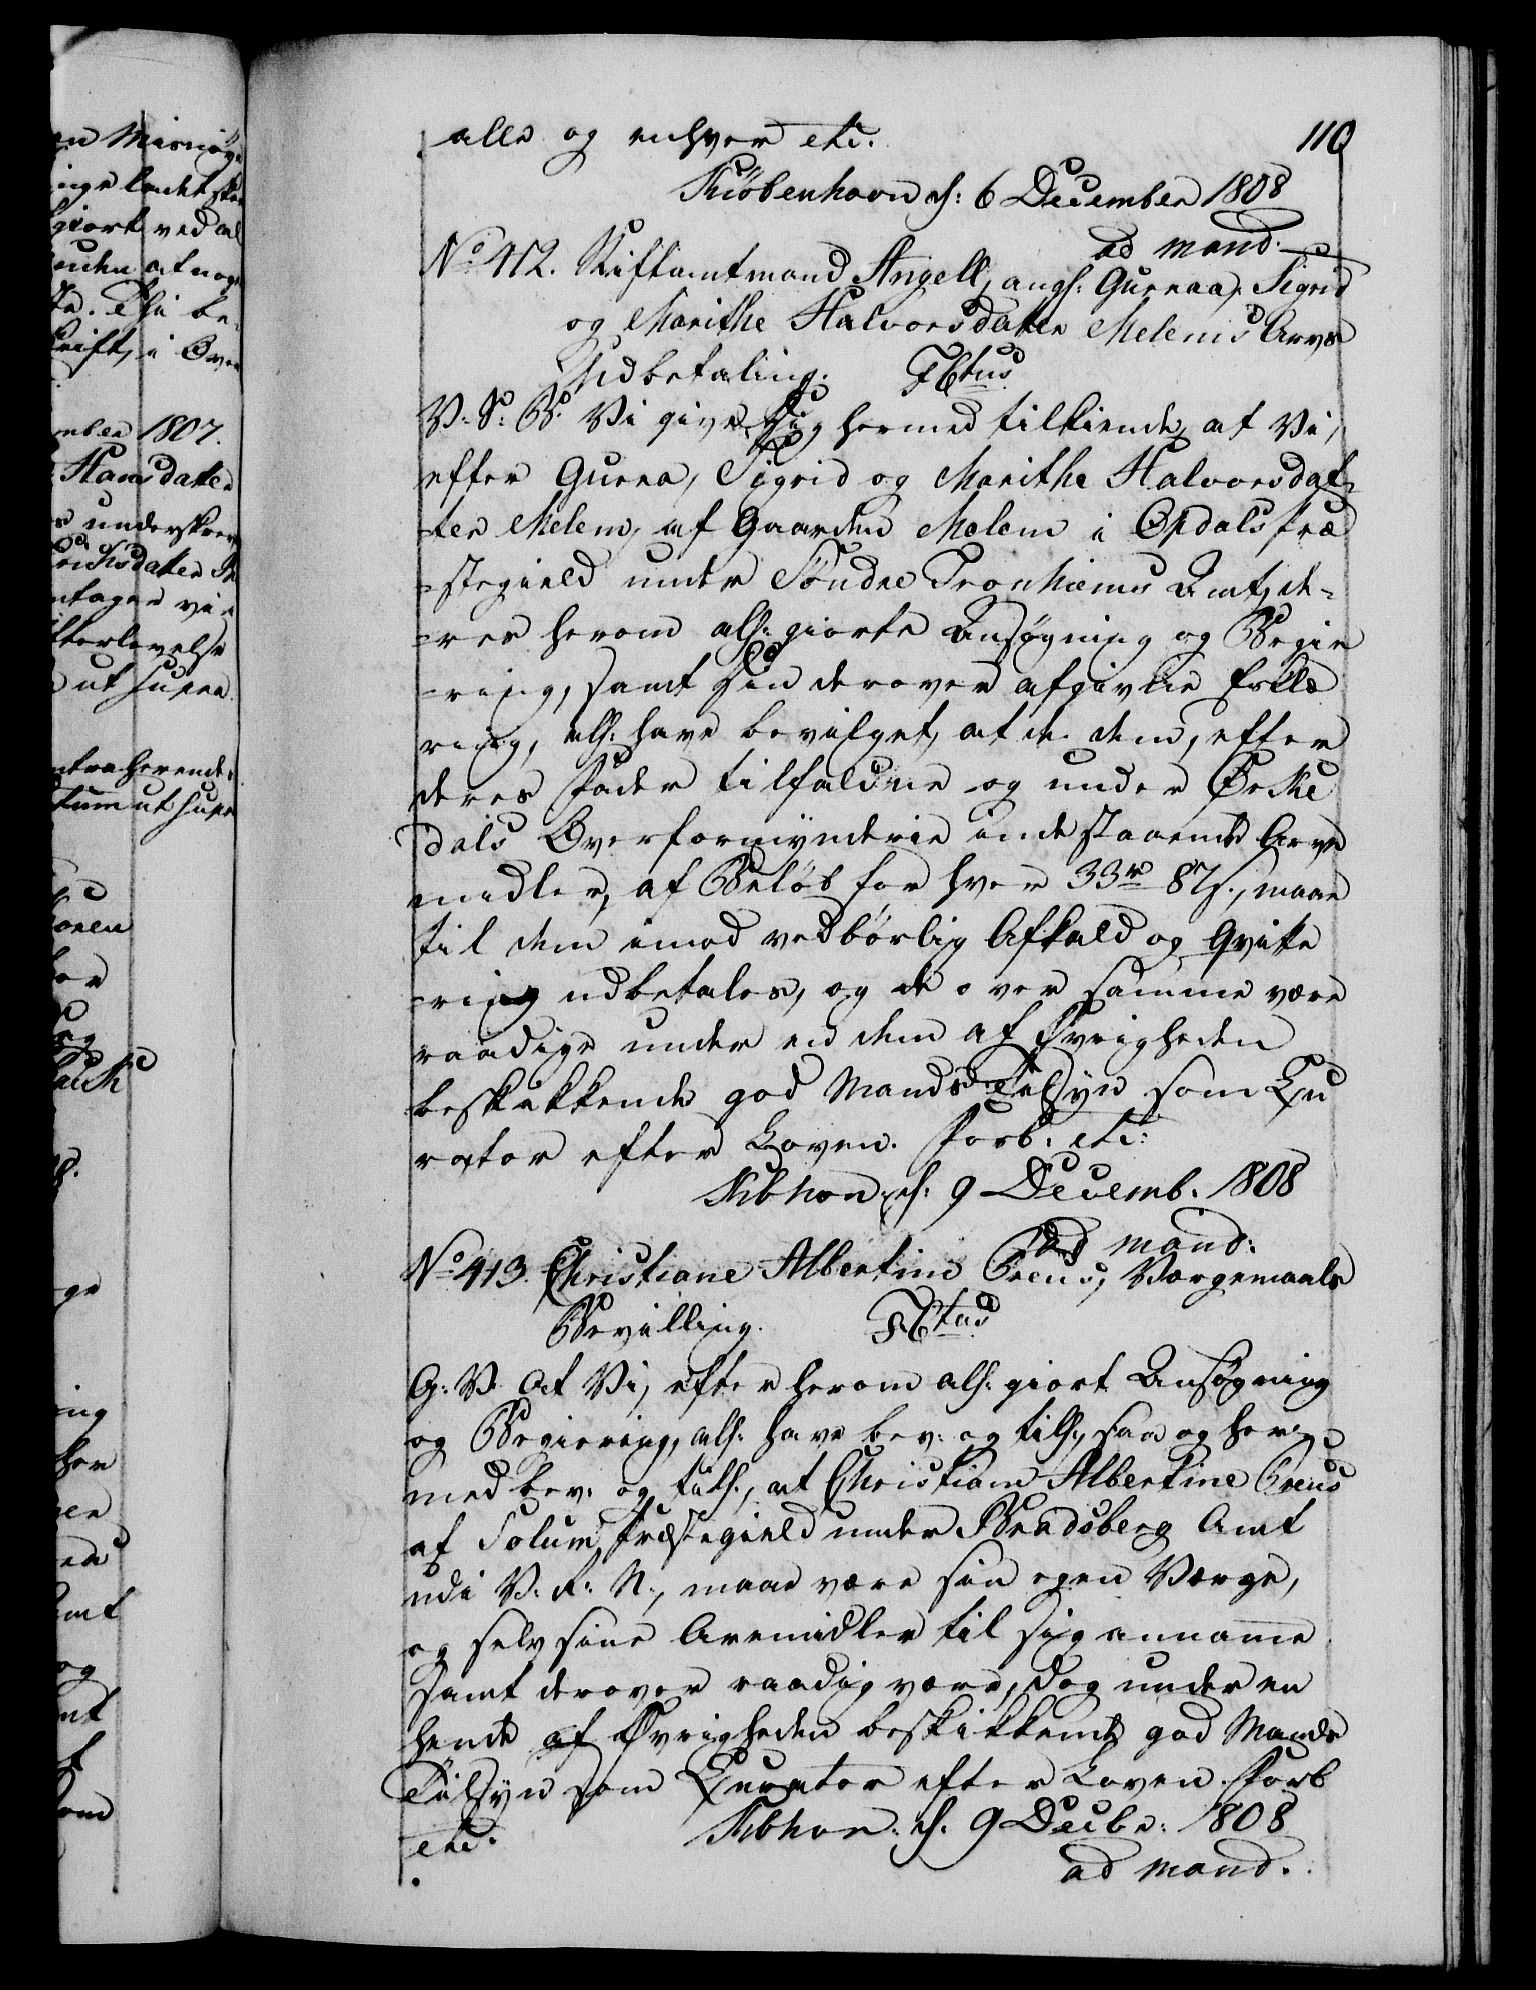 110
alle og enhver etc.
Kiøbenhavn d: 6 December 1808
ad mand.
No 412. Stiftamtmand Angell, angl: Gurnaa, Sigrid
og Marithe Halvorsdatter Melems Arvs
Udbetaling. F6tus
V: S: G: Vi give Dig hermed tilkiende, at Vi,
efter Gurna, Sigrid og Marithe Halvorsdat-
-ter Melem, af Gaarden Melem i Opdals Præ
-stegield under Søndre Tronhiems Amt, de-
-res herom alh: giorte Ansøgning og Begie
-ring, samt Din derover afgivne Erklæ
ring, alh: have bevilget, at de dem, efter
deres Fader tilfaldne og under Ørke
dals Overformynderie indestaaende Arve
midler, af Beløb for hver 33 rd 87 s., maae
til dem imod vedbørlig Afkald og Qvitte
-ring udbetales, og de over samme være
raadige under en dem af Øvrigheden
beskikkende god Mands Tilsyn som Cu
rator efter Loven. Forb: etc:
Kbhvn, d: 9 Decemb. 1808
ad mand:
No 413. Christiane Albertine Preus,Værgemaals
Bevilling. F6tus
G: V. At Vi, efter herom alh: giort Ansøgning
og Begiering, alh: have bev: og tilh:, saa og her-
med bev: og tilh:, at Christiane Albertine Preus
af Solum Præstegield under Bradsberg Amt
udi V. R: N:, maae være sin egen Værge,
og selv sine Arvemidler til sig annamme
samt derover raadig være, dog under en
hende af Øvrigheden beskikkende god Mands
Tilsyn som Curator efter Loven. Forb
etc. Kbhvn: d: 9 Decbr: 1808
ad mand.